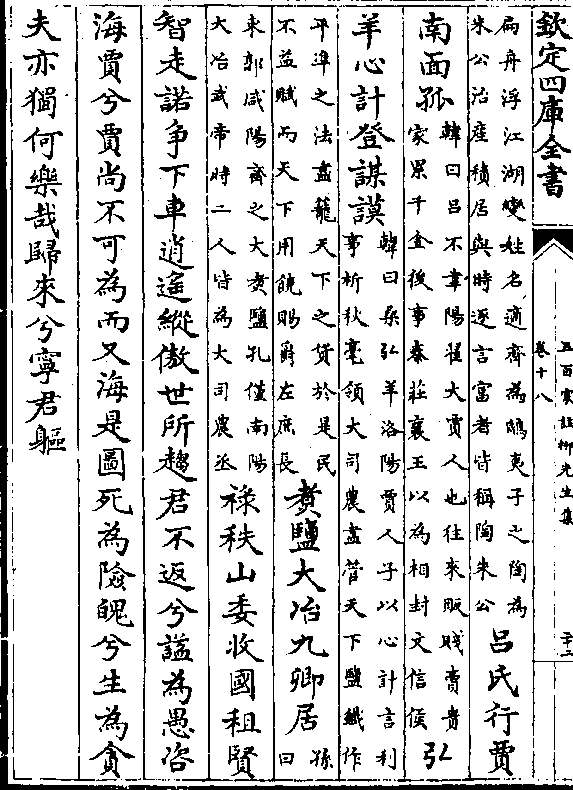 欽定四庫全書
五百家註柳先生集
卷十八
扁舟浮江湖變姓名適齊為鴟夷子之陶為
朱公治産積居與時逐言富者皆稱陶朱公
呂氏行賈
南面孤
韓曰呂不韋陽翟大賈人也往來販賤賣貴
家累千金後事秦莊襄王以為相封文信侯
弘
羊心計登謀謨
韓曰桑弘羊洛陽賈人子以心計言利
事析秋毫領大司農盡管天下鹽鐵作
平準之法盡籠天下之貨於是民
不益賦而天下用饒賜爵左庶長
煑鹽大冶九卿居
孫
曰
東郭咸陽齊之大煑鹽孔僅南陽
大冶武帝時二人皆為大司農丞
祿秩山委收國租賢
智走諾争下車逍遥縱傲世所趨君不返兮諡為愚咨
海賈兮賈尚不可為而又海是圖死為險魄兮生為貪
夫亦獨何樂哉歸來兮寧君軀